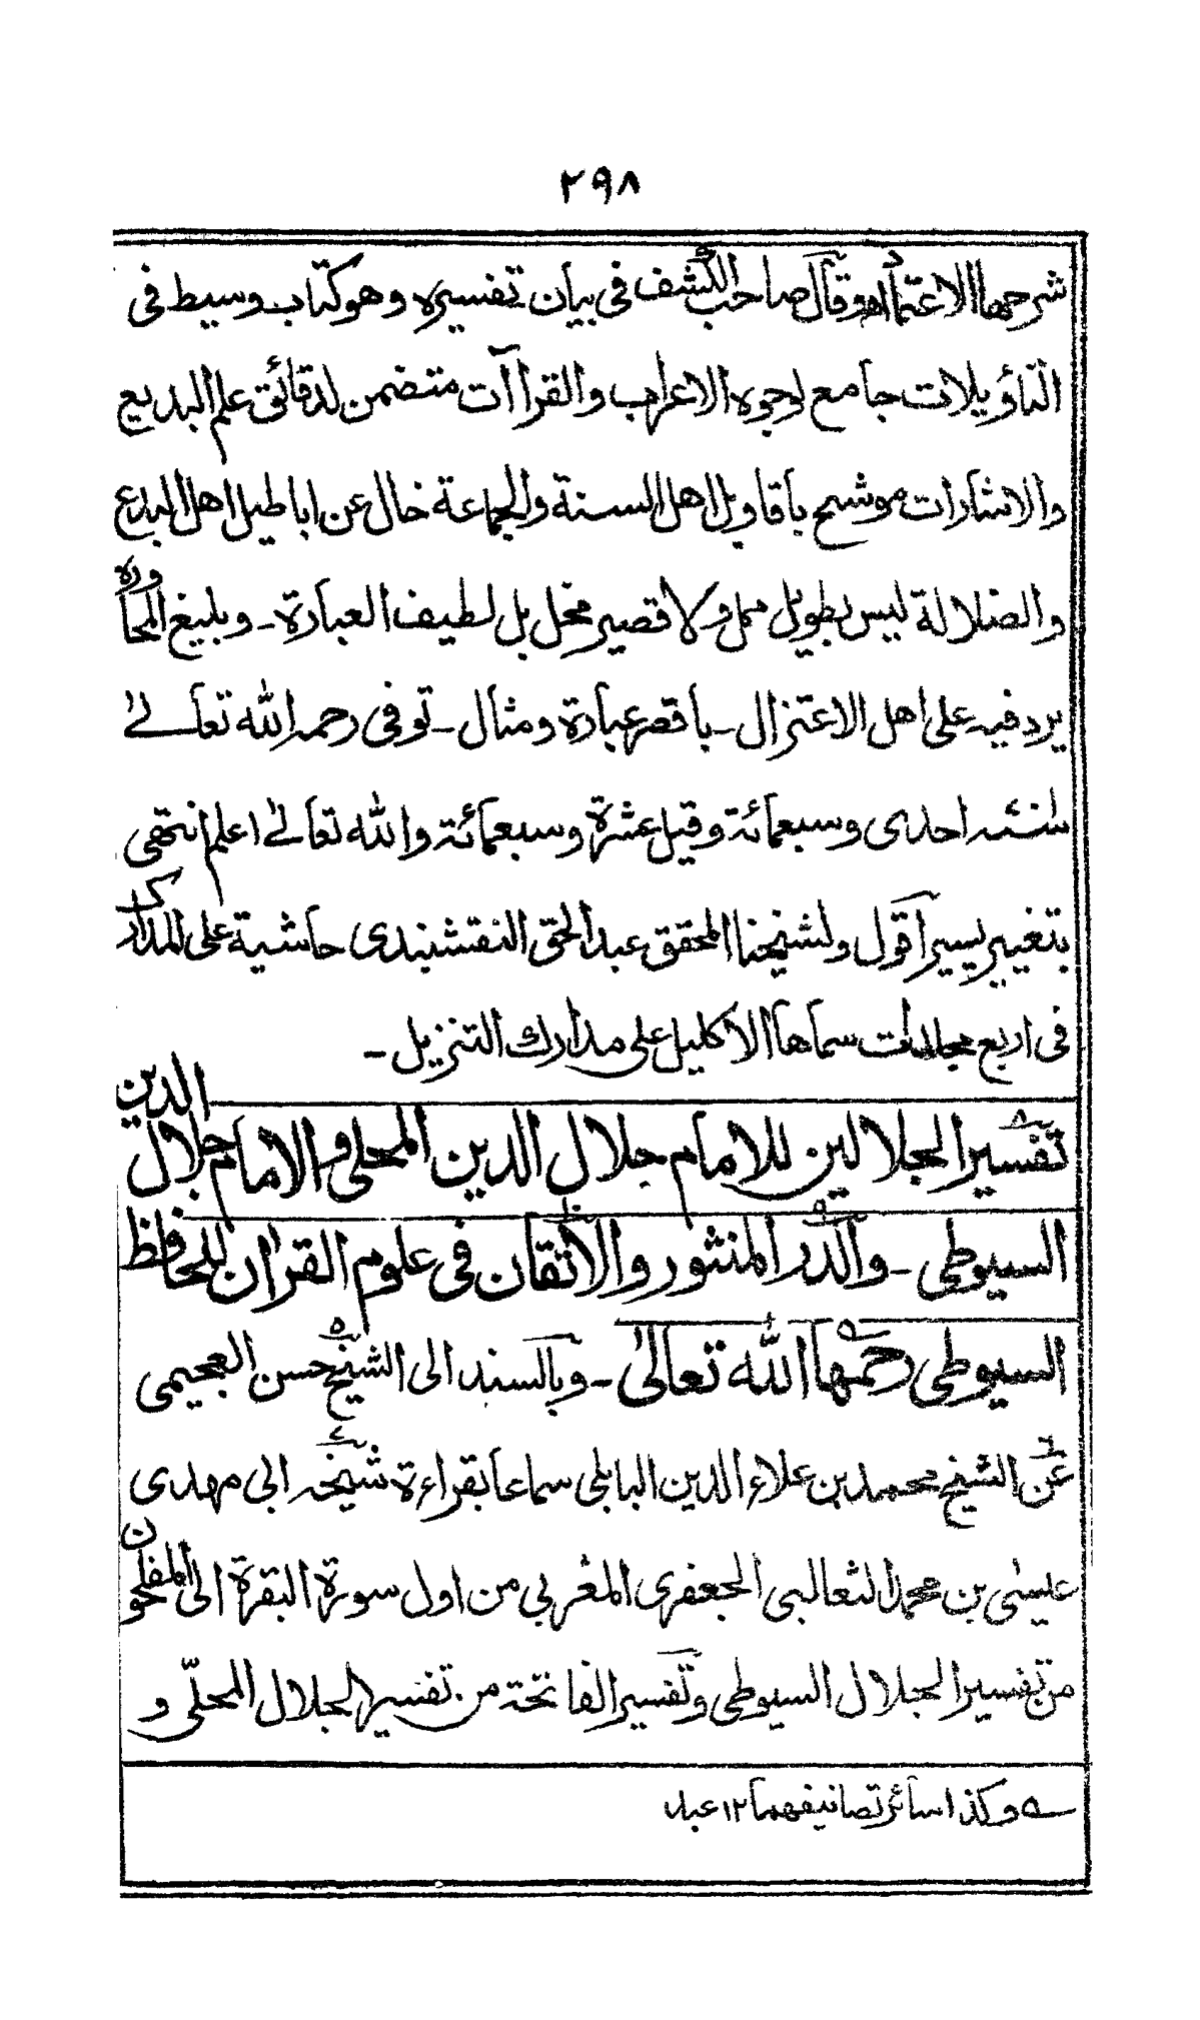 ٢٩٨
شرحها الاعتماد اهـ وقال صاحب الكشف في بيان تفسيره وهو كتاب وسيط في
التأويلات جامع لوجوه الاعراب والقراآت متضمن لدقائق علم البديع
والاشارات موشح باقاويل اهل السنة والجماعة خال عن اباطيل اهل البدع
والضلالة ليس بطويل ممل ولا قصير مخل بل لطيف العبارة ـ وبليغ المحاوره
يرد فيه على اهل الاعتزال ـ باقصر عبارة ومثال ـ توفى رحمه الله تعالے
سنـة احدى وسبعمائة وقيل عشرة وسبعمائة والله تعالے اعلم انتهى
بتغيير يسير اقول ولشيخنا المحقق عبد الحق النقشبندى حاشية على المدارك
في اربع مجلدات سماها الاكليل على مدارك التنزيل ـ
تفسير الجلالين للامام جلال الدين المحلى والامام جلال الدين
السيوطى ـ والدر المنثور والاتقان في علوم القران للحافظ
السيوطى رحمها الله تعالى ـ وبالسند الى الشيخ حسن العجيمى
عن الشيخ محمد بن علاء الدين البابلى سماعا بقراءة شيخه ابى مهدى
عيسى بن محمد الثعالبى الجعفرى المغربي من اول سورة البقرة الى المفلحون
من تفسير الجلال السيوطى وتفسير الفاتحة من تفسير الجلال المحلّى و
ـه وكذا سائر تصانيفهما ١٢ عبد